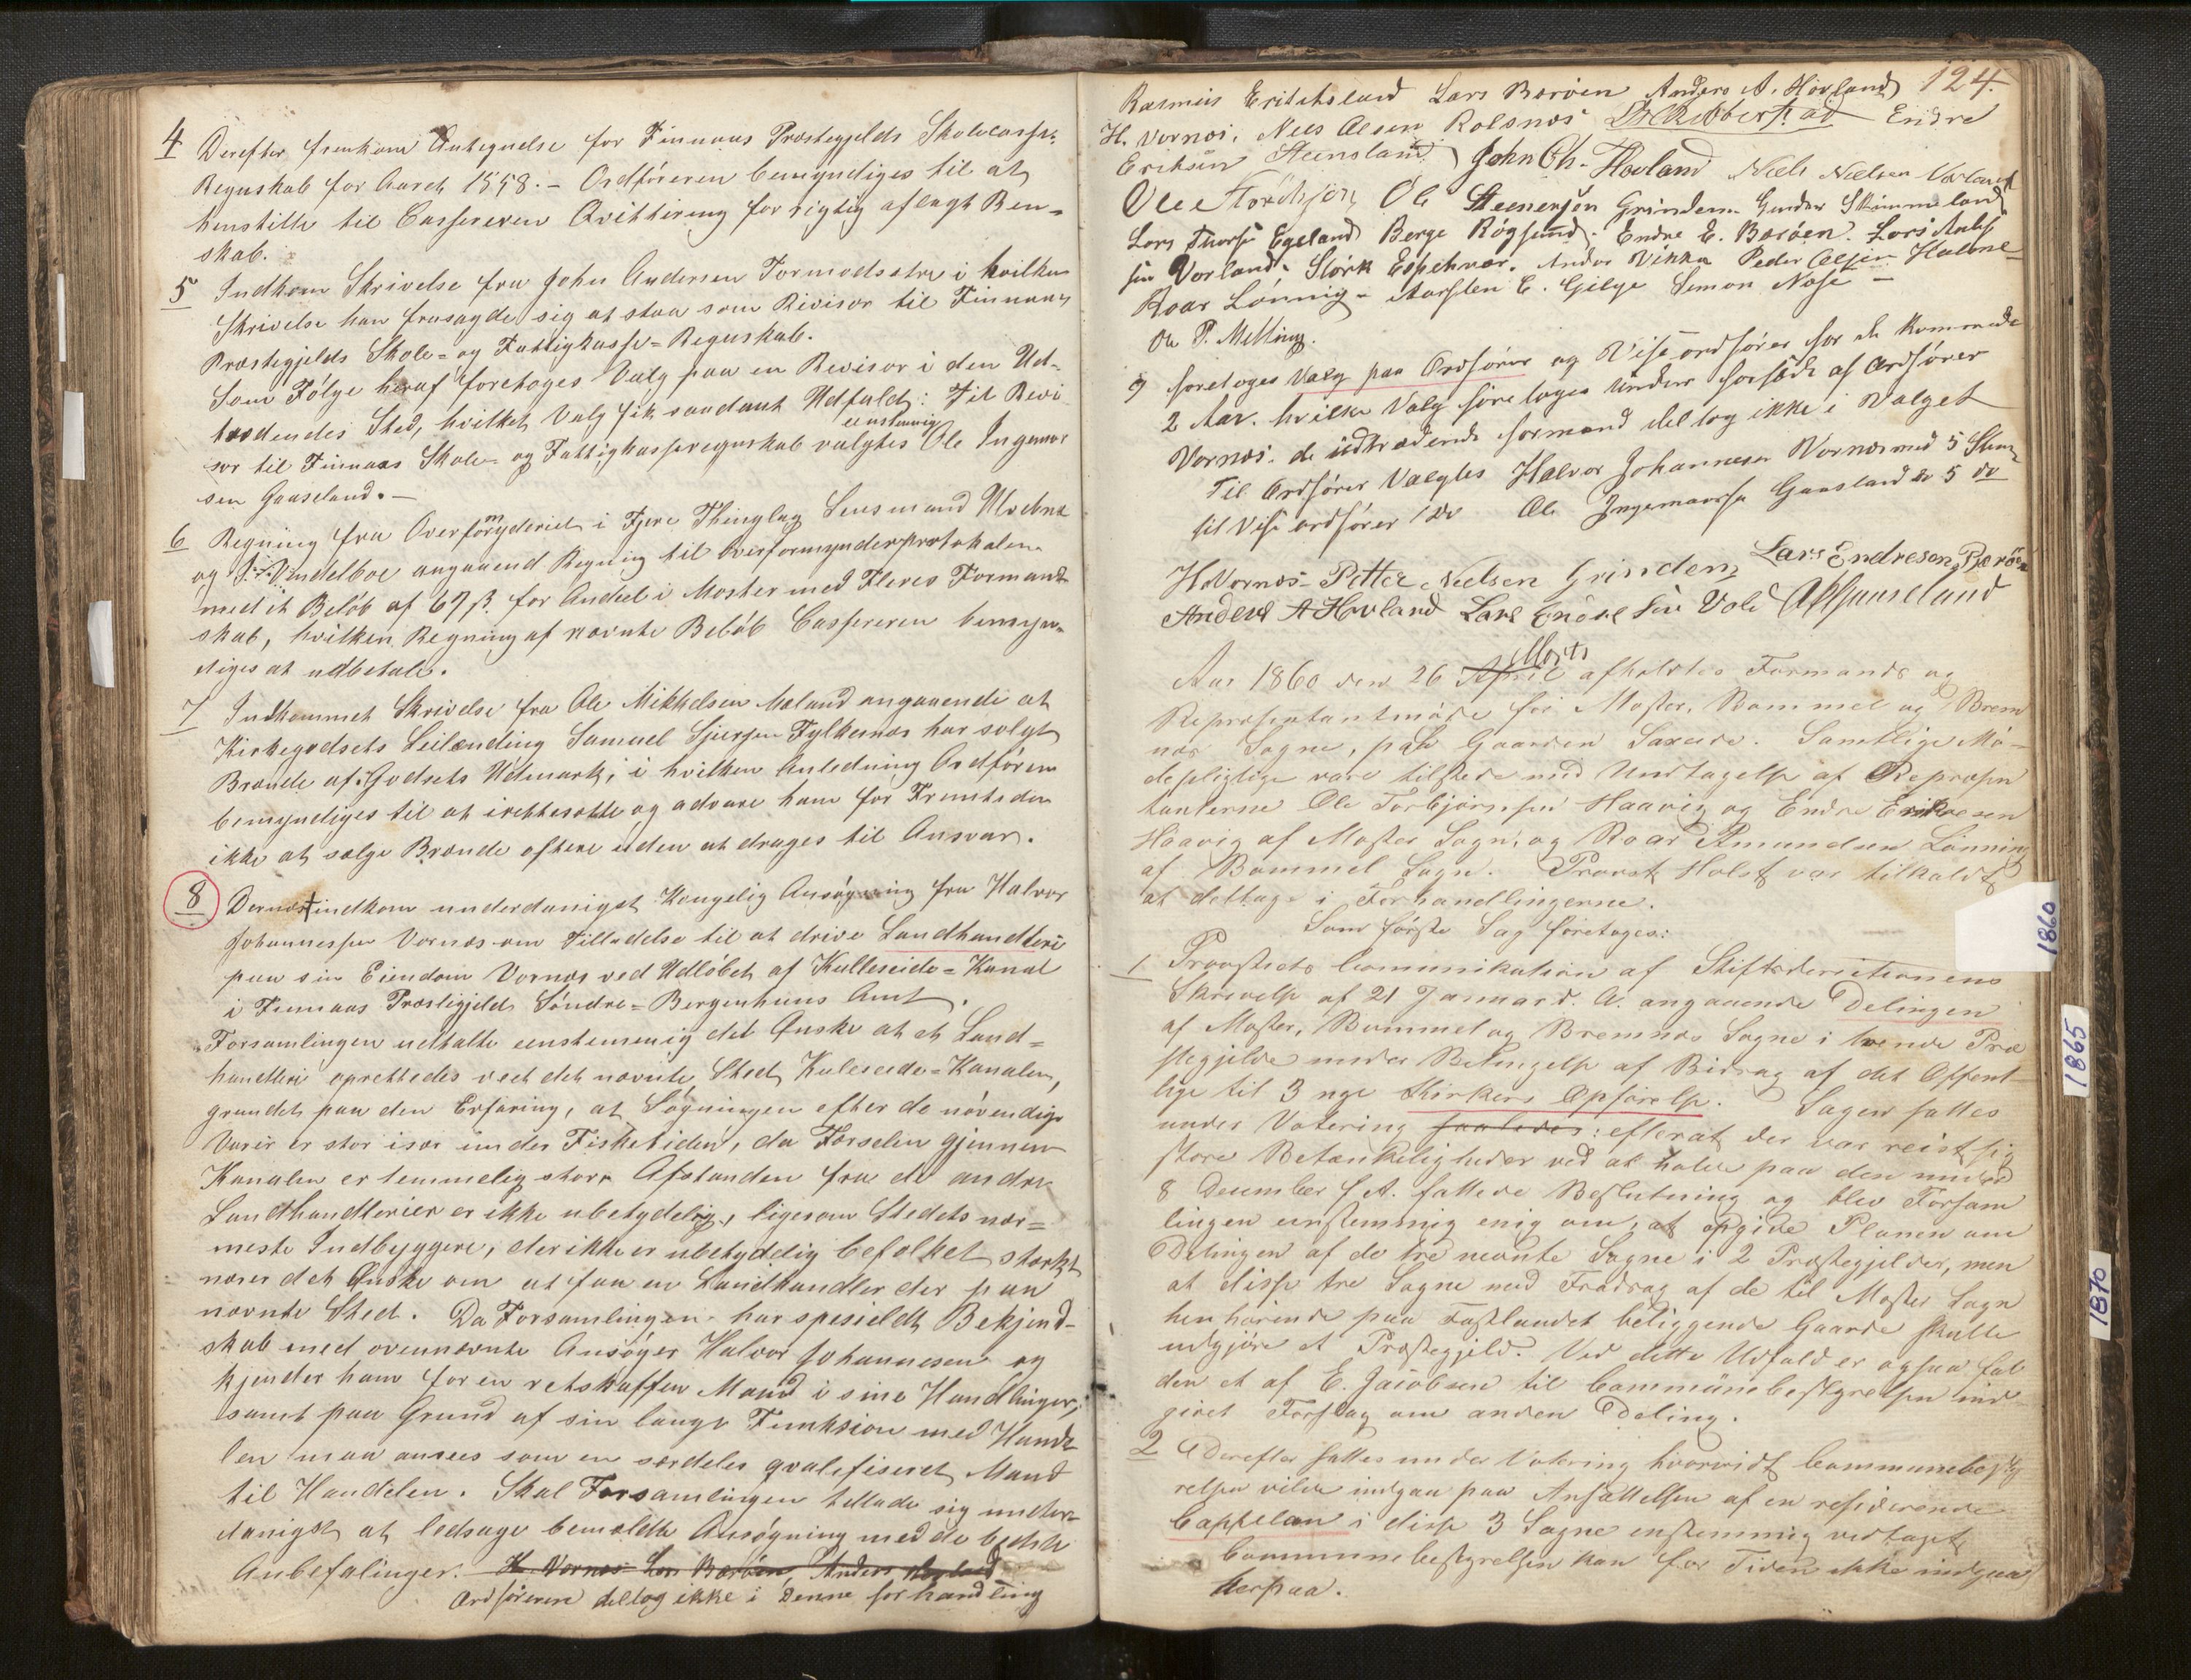 4 Derefter fremkom Antegnelse for Finnaas Præstegjelds Skolecasse-
Regnskab for Aaret 1858. - Ordføreren bemyndiges til at
henstille til Cassereren Qvittering for rigtig aflagt Ren-
skab.
5 Indkom Skrivelse fra John Andersen Tormodsætre i hvilken
Skrivelse han frasagde sig at staa som Revisor til Finnaas
Præstegjelds Skole- og Fattigkasse-Regnskab.
Som Følge heraf foretoges Valg paa en Revisor i den Ud-
trædendes Sted, hvilket Valg fik saadant Udfald: Til Revi
eenstemmig
sor til Finnaas Skole- og Fattigkasseregnskab valgtes Ole Ingemor
sen Gaaseland. -
6 Regning fra Overformynderiet i Fjere Thinglag Lensmand
og Vindelboe angaaend Regnig til Overformynderprotokolen
med et Beløb af 67 β. for Andeel i Moster med Fleres Formand-
skab, hvilken Regning af nævnte Beløb Cassereren bemyn-
diges at udbetale.
7 Indkommet Skrivelse fra Ole Mikkelsen Mæland angaaende at
Kirkegodsets Leilænding Samuel Sjursen Fylkesnæs har solgt
Brænde af Godsets Udmark, i hvilken Anledning Ordføren
bemyndiges til at irettesætte og advare ham for Fremtiden
ikke at sælge Brænde oftere uden at drages til Ansvar.
8 Dernæst indkom underdanigst Kongelig Ansøgning fra Halvor
Johannessen Vornæs om Tilladelse til at drive Landhandleri
paa sin Eiendom Vornæs ved Udløbet af Kulleseide-Kanal
i Finnaas Præstegjeld Søndre-Bergenhuus Amt.
Forsamlingen udtalte eenstemmig det Ønske at et Land-
handleri oprettedes ved det nævnte Sted Kuleseide-Kanalen,
grundet paa den Erfaring, at Søgningen efter de nøvendige
Varer er stor især under Fisketiden, da Færselen gjennem
Kanalen er temmelig stor, Afstanden fra de andre
Landhandlerier er ikke ubetydelig, ligesom Stedets nær-
meste Indbyggere, der ikke er ubetydelig befolket stærkt
nærer det Ønske om at faa en Landhandler der paa
nævnte Sted. Da Forsamlingen har spesieldt Bekjend-
skab med ovennævnte Ansøger Halvor Johannesen og
kjender ham for en retskaffen Mand i sine Handlinger,
samt paa Grund af sin lange Funksion med Hande
len maa ansees som en særdeles qvalefiseret Mand
til Handelen. Skal Forsamlingen tillade sig under-
danigst at ledsage bemældte Ansøgning med de bedste
Anbefalinger. H. Vornæs Lars Børøen, Anders Hovland
Ordføreren deltog ikke i denne forhandling
124.
Rasmus Eritsland Lars Børøen Anders A. Hovland
H. Vornæs. Nils Olsen Rolsnæs Endre
Eriksen Steensland, John Ch. Hovland Niels Nielsen Vorland
Ole Størchsen Ole Steenersøn Grinden Gunder Skimmeland
Lars Thorse Egeland Berge Røgsund. Endre E. Børøen. Lars
sen Vorland. Størk Espehvær. Andor Vikka Peder Olsen Halvne
Roar Lønnig - Aarsten E. Gilje Simon Nose -
Ole P. Melling.
9 foretoges Valg paa Ordfører og Vise ordfører for de Kommende
2 Aar. hvilke Valg foretoges under forsæde af Ordfører
Vornæs. de udtrædende formænd deltog ikke i Valget
Til Ordfører Valgtes Halvor Johannesen Vornæs med 5 Stem
til Vise ordfører do Ole Ingemorsen Gaasland do 5 do
H. Vornæs Petter Nielsen Grinden, Lars Endresen Børøen
Anders A Hovland Lars Endresen Vold Gaaseland
Morts
Aar 1860 den 26 April afholdtes Formands og
Repræsentantmøde for Moster, Bømmel og Brem
næs Sogne, paa Gaarden Saxeide. Samtlige Mø-
depligtige vare tilstede med Undtagelse af Repræsen
tanterne Ole Torbjørnsen Haavig og Endre Eriksen
Haavig af Moster Sogn, og Roar Amundsen Lønning
af Bømmel Sogn. Provst Holst var tilkaldt
at deltage i Forhandlingerne.
Som første Sag foretoges:
1 Provstiets Communikation af Stiftsdirektionens
Skrivelse af 21 Januar d. A. angaaende Delingen
af Moster, Bømmel og Bremnæs Sogne i tvende Præ
stegjelde under Betingelse af Bidrag af det Offent-
lige til 3 nye Kirkers Opførelse. Sagen sattes
under Votering saaledes: efterat der var reist sig
store Betænkeligheder ved at holde paa den under
8 December f. A. fattede Beslutning og blev Forsam
lingen eenstemmig enig om, at opgive Planen om
Delingen af de tre nævnte Sogne i 2 Præstegjelder, men
at disse tre Sogne med Fradrag af de til Moster Sogn
henhørende paa Fastlandet beliggende Gaarde skulle
udgjøre et Præstegjeld. Ved dette Udfald er ogsaa fal
den et af E. Jacobsen til Communebestyrelsen ind-
givet Forslag om anden Deling.
2 Derefter sattes under Votering hvorvidt Communebesty
relsen vilde indgaa paa Ansættelsen af en residerende
Cappelan i disse 3 Sogne enstemmig vedtaget
Communebestyrelsen kan for Tiden ikke indgaa
herpaa.
1860
1865
1870